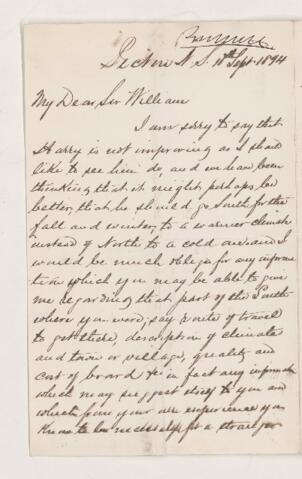 Pictou N. S. 18th Sept. 1894
My Dear Sir William
I am sorry to say that
Harry is not improving as I should
like to see him do, and we have been
thinking that it might perhaps be
better that he should go South for the
fall and winter, to a warmer climate
instead of North to a cold one and I
would be much oblige for any informa
tion which you may be able to give
me regarding that part of the South
where you were, say route of travel
to get there, description of climate
and town or village, quality and
cost of board &c in fact any informatn
which may suggest itself to you and
which from your own experience you
know to be necessary for a stranger